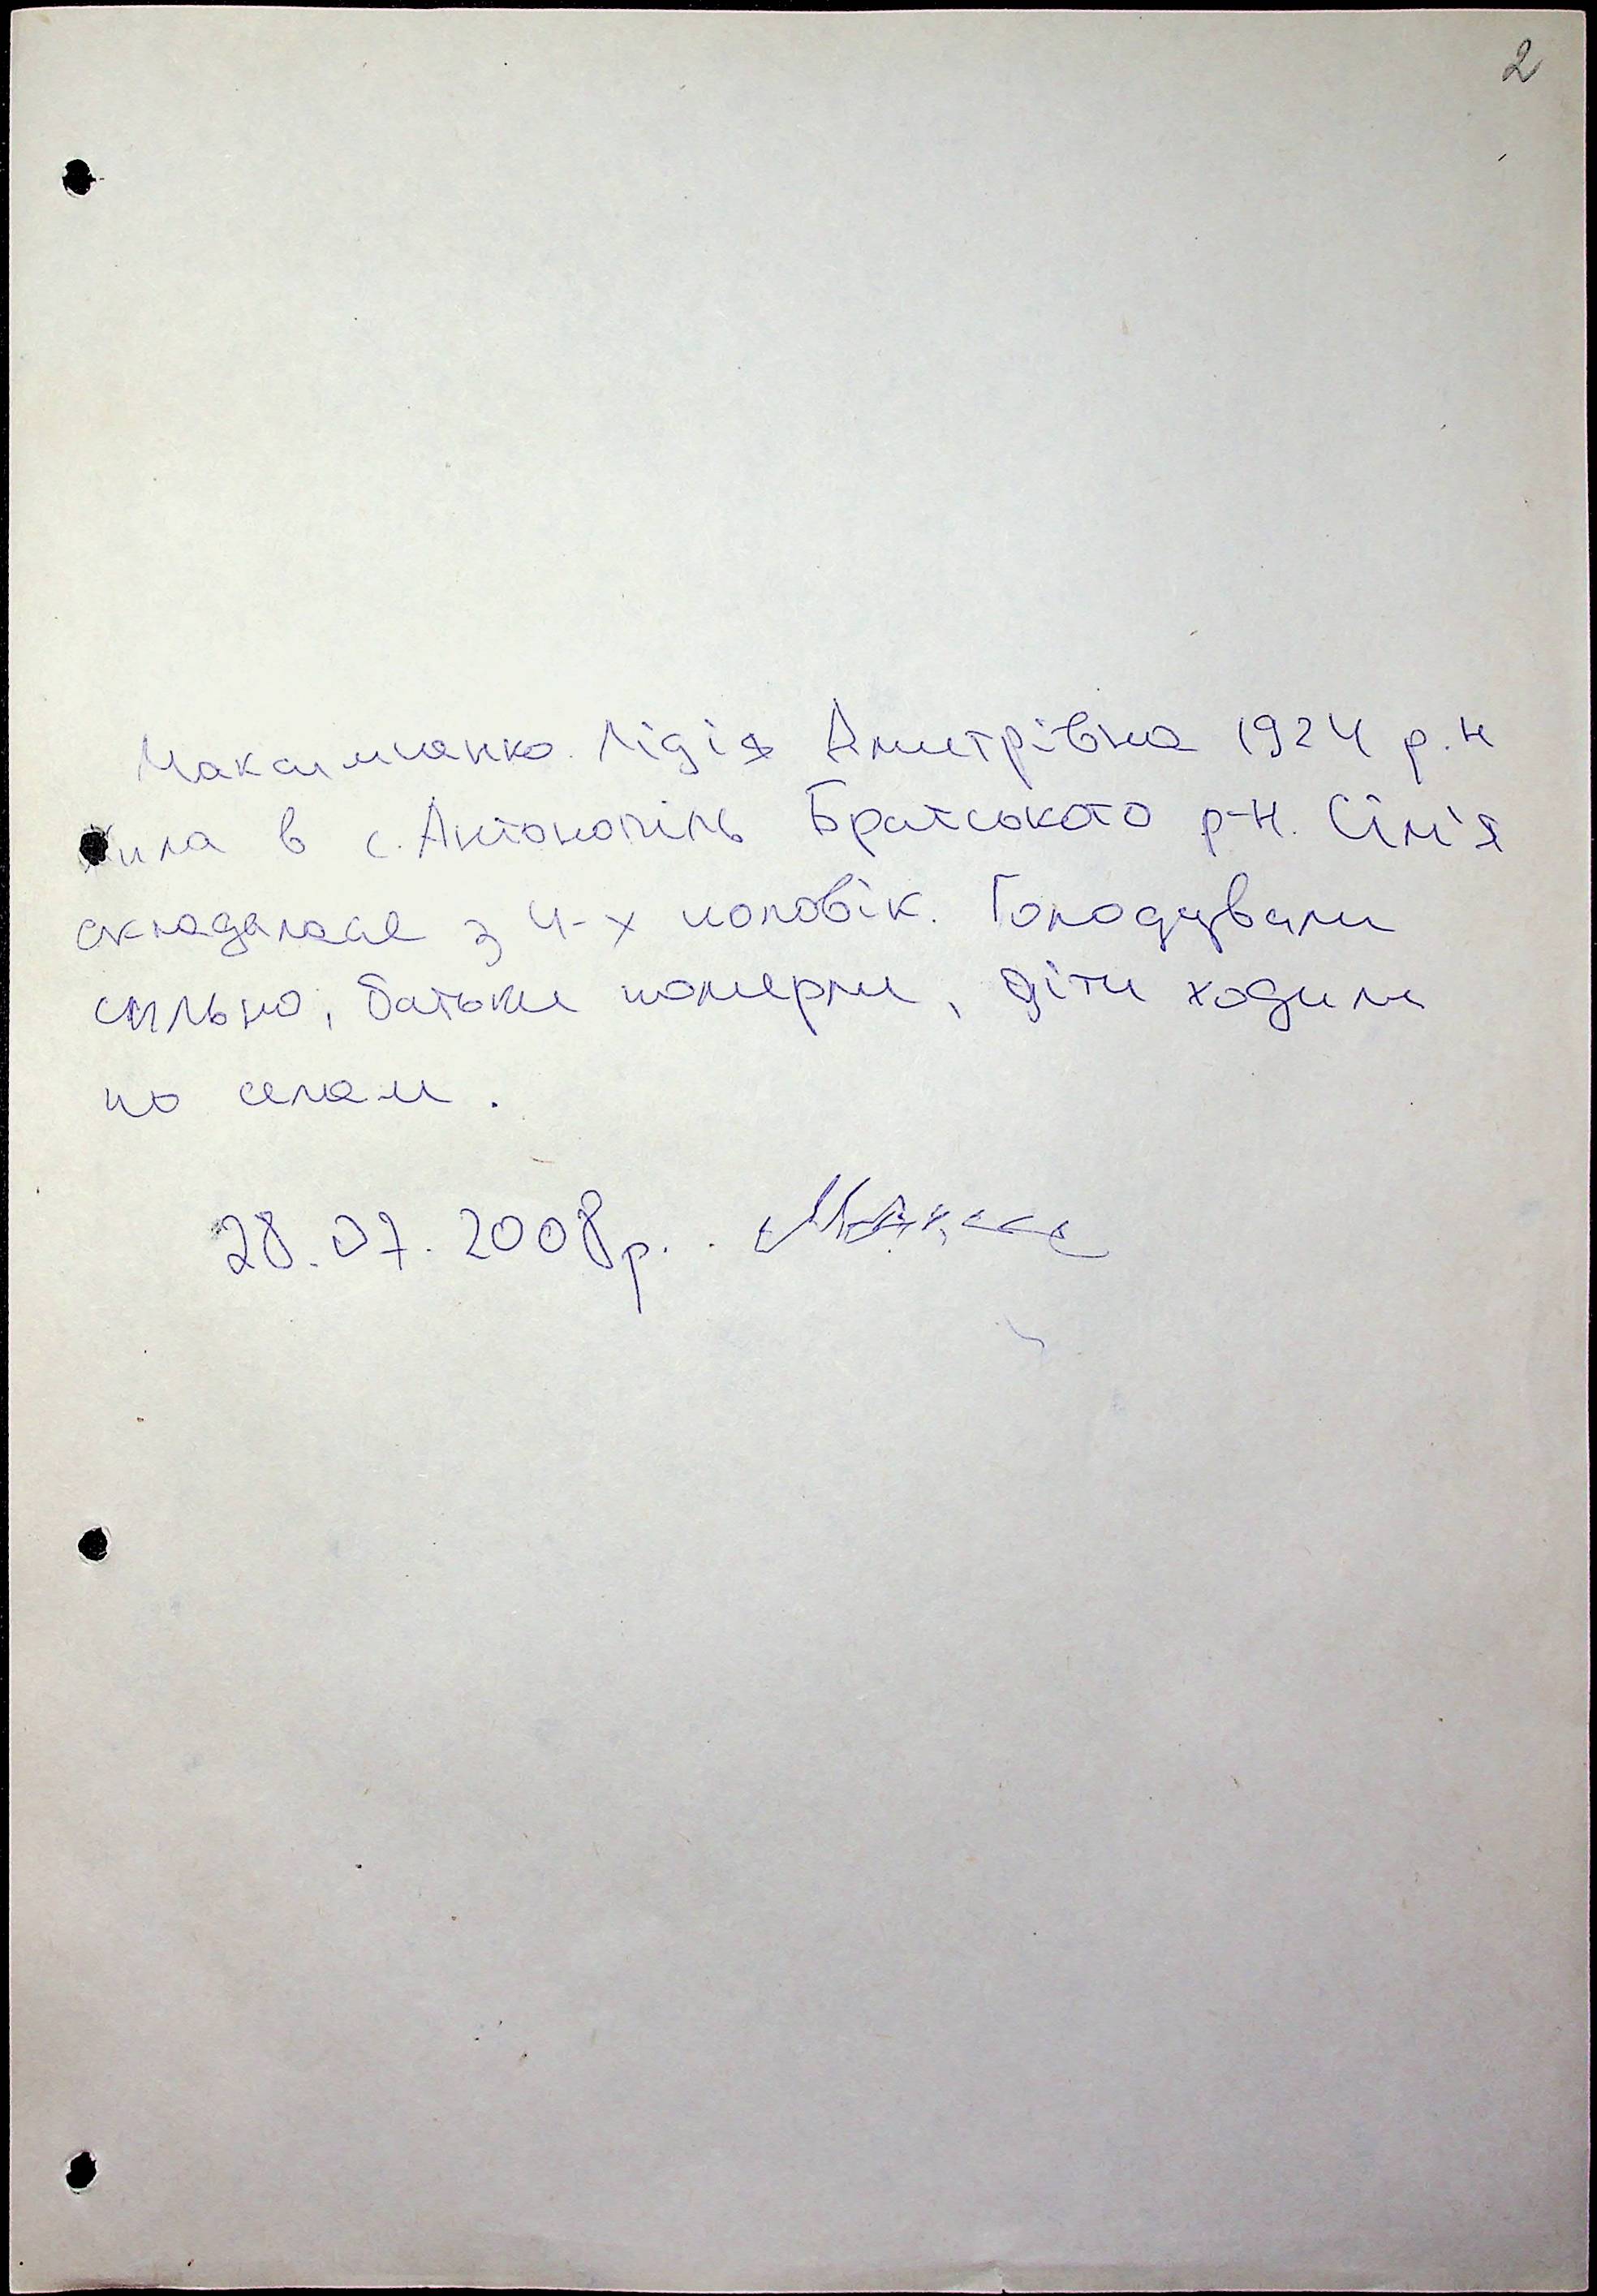 2
Максименко Лідія Дмитрівна 1924 р.н
жила в с. Антонопіль Братського р-н. Сім'я
складалася з 4-х чоловік. Голодували
сильно, батьки померли, діти ходили
по селам.
28.07.2008р.